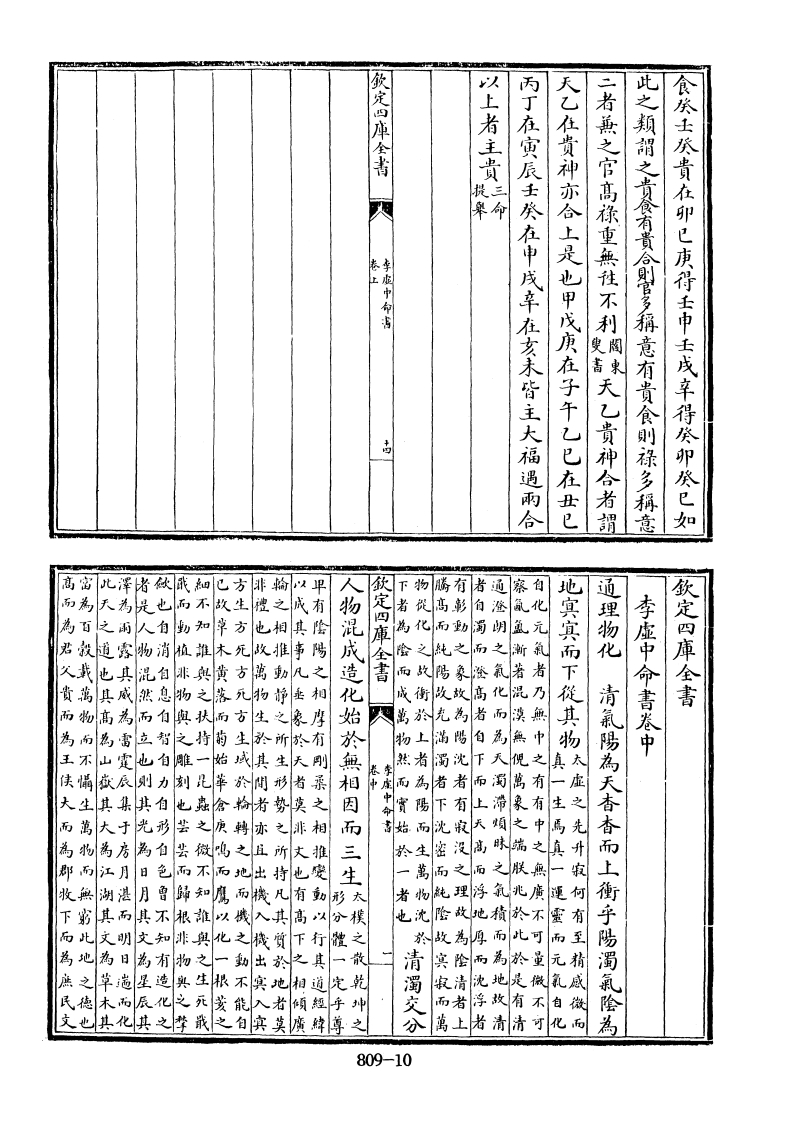 食癸壬癸貴在卯巳庚得壬申壬戌辛得癸卯癸巳如
此之類謂之貴食有貴合則官多稱意有貴食則祿多稱意
二者無之官髙祿重無性不利閻東叟書天乙貴神合者謂
天乙在貴神亦合上是也甲戊庚在子午乙巳在丑巳
丙丁在寅辰壬癸在申戌辛在亥未皆主大福遇兩合
以上者主貴三命提舉
欽定四庫全書
李虛中命書
卷上
十四
欽定四庫全書
李虛中命書卷中
通理物化　清氣陽為天杳杳而上衝乎陽濁氣陰為
地㝠㝠而下從其物太虛之先升寂何有至精感微而真一生焉真一運靈而元氣自化
自化元氣者乃無中之有有中之無廣不可量微不可
察氤氳漸著混漠無倪萬象之端朕兆於此於是有清
通澄朗之氣化而為天濁滯煩昧之氣積而為地故清
者自濁而澄髙者自下而上天髙而浮地厚而沈浮者
有彰動之象故為陽沈者有寂没之理故為陰清者上
騰髙而純陽故充滿濁者下沈密而純陰故㝠寂而萬
物從化之故衝於上者為陽而生萬物沈於
下者為陰而成萬物然而實始於一者也清濁交分
欽定四庫全書
李虛中命書
卷中
二
人物混成造化始於無相因而三生太樸之散乾坤之形分體一定乎尊
卑有陰陽之相摩有剛柔之相推變動以行其道經緯
以成其事凡垂象於天者莫非文也有髙下之相傾廣
輪之相推動靜之所生形勢之所持凡其質於地者莫
非禮也故萬物生於其間者亦且出機入機出㝠入㝠
方生方死方死方生域於輪轉之地而機之動不能自
已故草木黃落而菊始華倉庚鳴而鷹以化一根荄之
細不知誰與之扶持一昆蟲之微不知誰與之生死戢
戢而動植非物與之雕刻也芸芸而歸根非物與之揫
斂也自消自息自智自力自形自色曽不知有造化之
者是人物混然而立也則其光為日月其文為星辰其
澤為雨露其威為雷霆辰集于房月湛而明日遄而化
此天之道也其髙為山嶽其大為江湖其文為草木其
富為百穀載萬物而不懾生萬物而無窮此地之德也
髙而為君父貴而為王侯大而為郡牧下而為庶民文
809-10